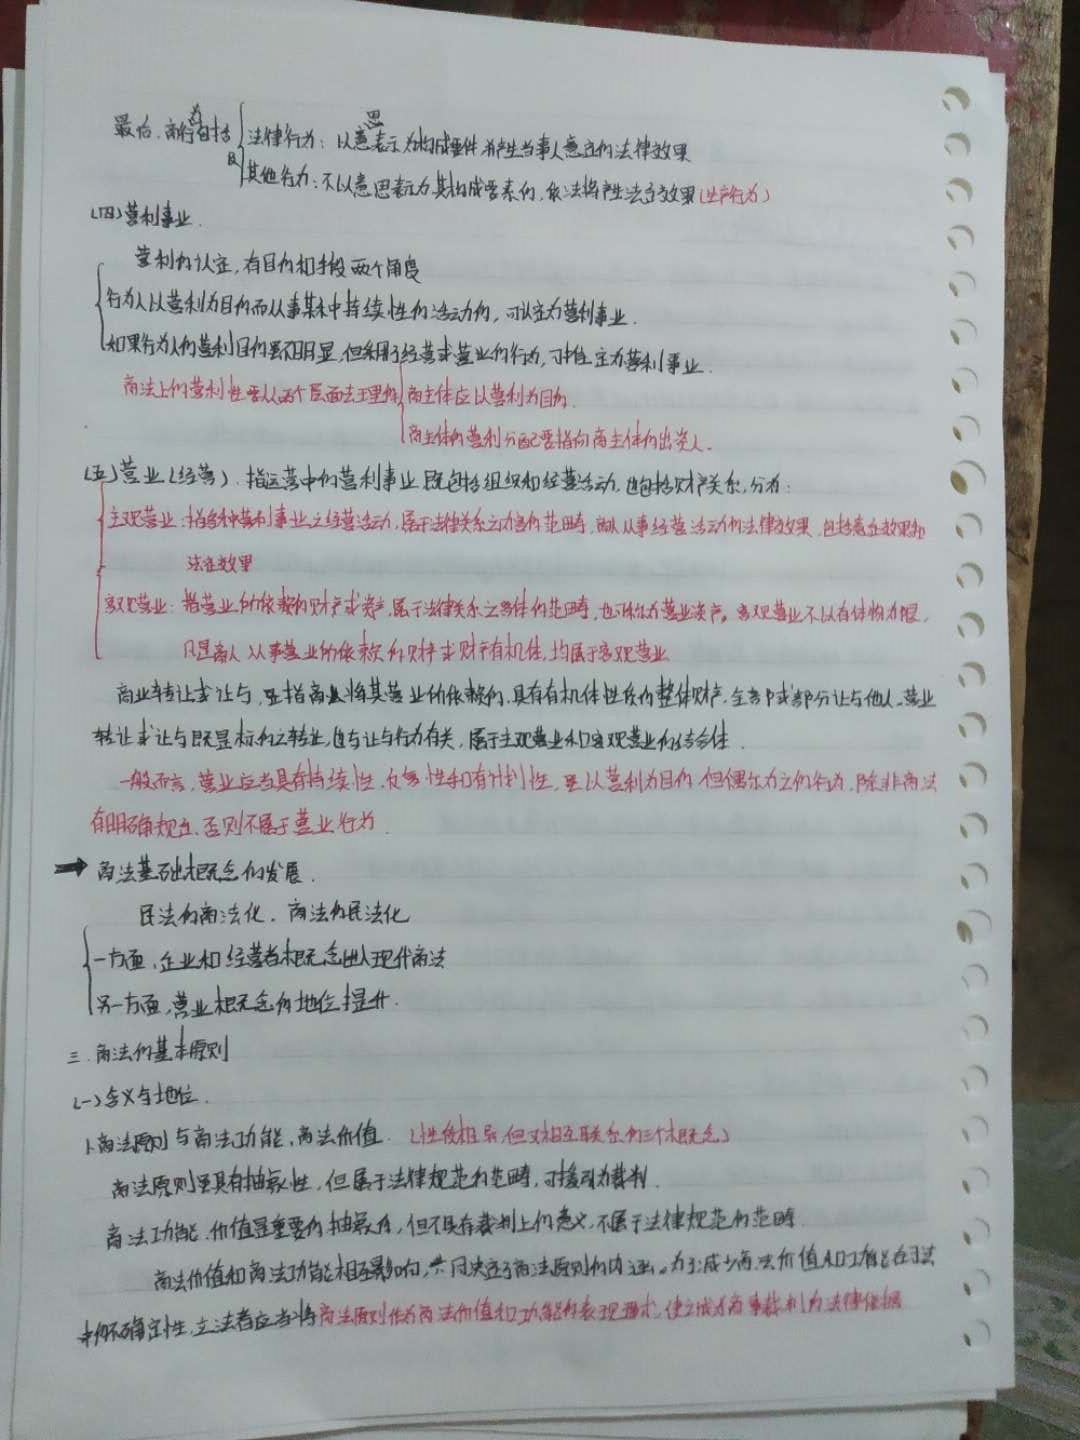 最后，商行为包括 法律行为：以意思表示为构成要件并产生当事人意定的法律效果
及其他行为：不以意思表示为其构成要素的，依法将产生法定效果（生产行为）
（四）营利事业．
营利的认定，有目的和手段两个角度
行为人以营利为目的而从事某种持续性的活动的，可认定为营利事业．
如果行为人的营利目的虽不明显，但采用了经营或营业的行为，可推定为营利事业．
商法上的营利性要从两个层面去理解 商主体应以营利为目的．
商主体的营利分配要指向商主体的出资人．
（五）营业（经营）．指运营中的营利事业，既包括组织和经营活动，也包括财产关系，分为：
主观营业：指各种营利事业之经营活动，属于法律关系之内容的范畴，从事经营活动的法律效果，包括意定效果和
法定效果
客观营业：指营业所依赖的财产或资产，属于法律关系之客体的范畴，也可称为营业资产。客观营业不以有体物为限，
凡是商人从事营业所依赖的财产或财产有机体，均属于客观营业
商业转让或让与，是指商人将其营业所依赖的、具有有机体性质的整体财产，全部或部分让与他人．营业
转让或让与既是标的之转让，也与让与行为有关，属于主观营业和客观营业的结合体．
一般而言，营业应当具有持续性、反复性和有计划性，虽以营利为目的，但偶尔为之的行为，除非商法
有明确规定，否则不属于营业行为．
→ 商法基础概念的发展．
民法的商法化．商法的民法化
一方面，企业和经营者概念出入现代商法
另一方面，营业概念的地位提升．
三．商法的基本原则
（一）含义与地位．
1、商法原则与商法功能、商法价值．（性质相异，但又相互联系的三个概念）
商法原则虽具有抽象性，但属于法律规范的范畴，可援引为裁判．
商法功能、价值是重要的抽象，但不具有裁判上的意义，不属于法律规范的范畴．
商法价值和商法功能相互影响，共同决定了商法原则的内涵。为了减少商法价值和功能在司法
中的不确定性，立法者应当将商法原则作为商法价值和功能的表现形式，使之成为商事裁判的法律依据